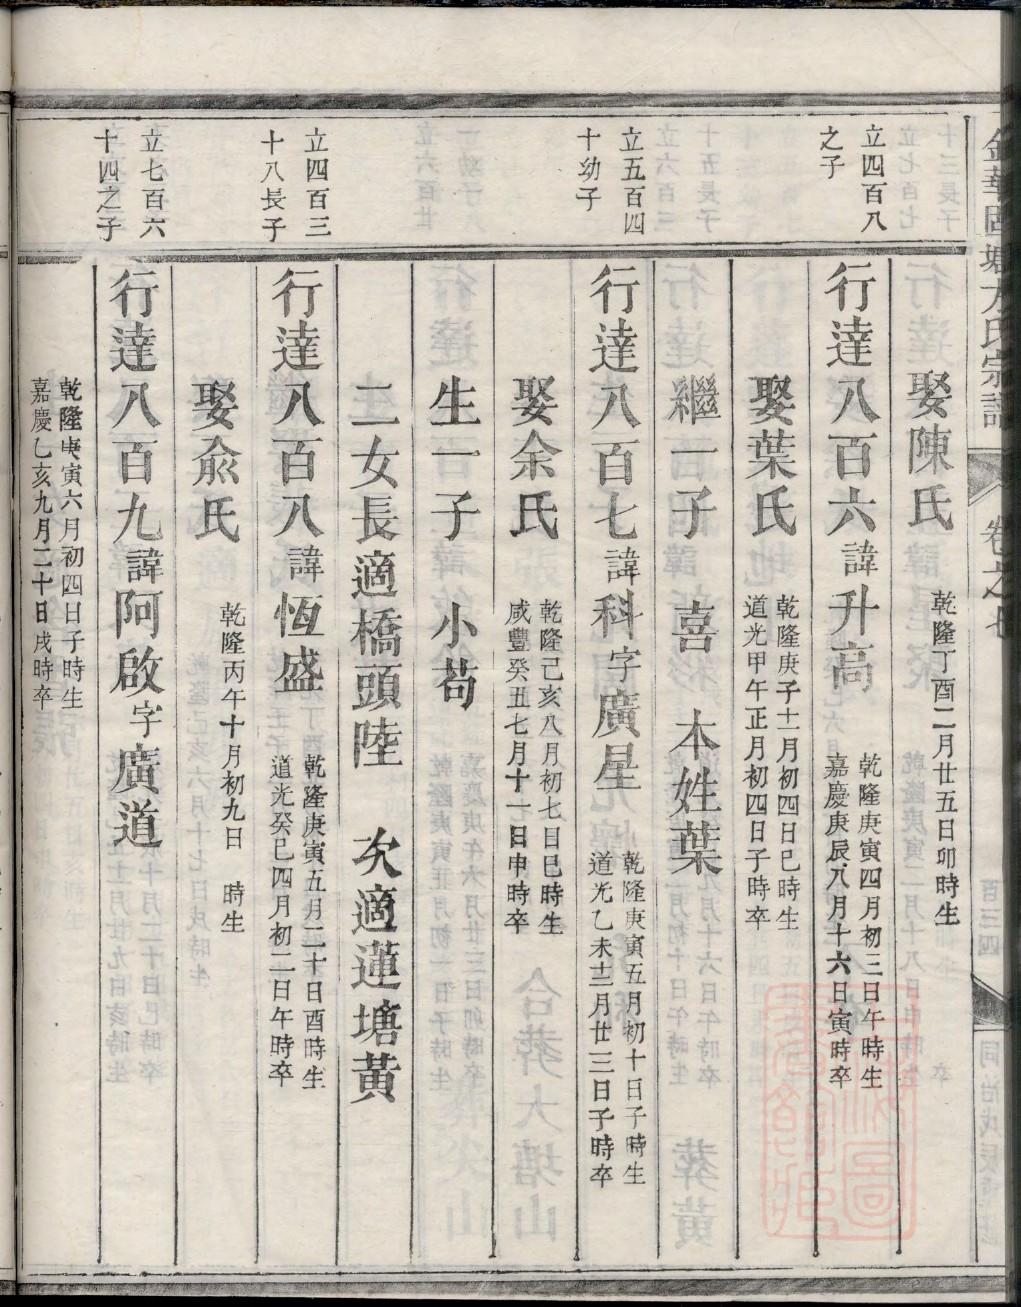 金華
塘方氏宗譜
卷之七
娶陳氏
乾隆丁酉二月廿五日卯時生
立四百八
之子
行達八百六諱升高
乾隆庚寅四月初三日午時生
嘉慶庚辰八月十六日寅時卒
娶葉氏
乾隆庚子十一月初四日巳時生
道光甲午正月初四日子時卒
繼一子 喜 本姓葉
立五百四
十幼子
行達八百七諱科字廣星
乾隆庚寅五月初十日子時生
道光乙未十二月廿三日子時卒
娶余氏
乾隆己亥八月初七日巳時生
咸豐癸丑七月十一日申時卒
生一子 小苟
二女長適橋頭陸 次適蓮塘黃
立四百三
十八長子
行達八百八諱恆盛
乾隆庚寅五月二十日酉時生
道光癸巳四月初二日午時卒
娶俞氏
乾隆丙午十月初九日 時生
立七百六
十四之子
行達八百九諱阿啟字廣道
乾隆庚寅六月初四日子時生
嘉慶乙亥九月二十日戌時卒